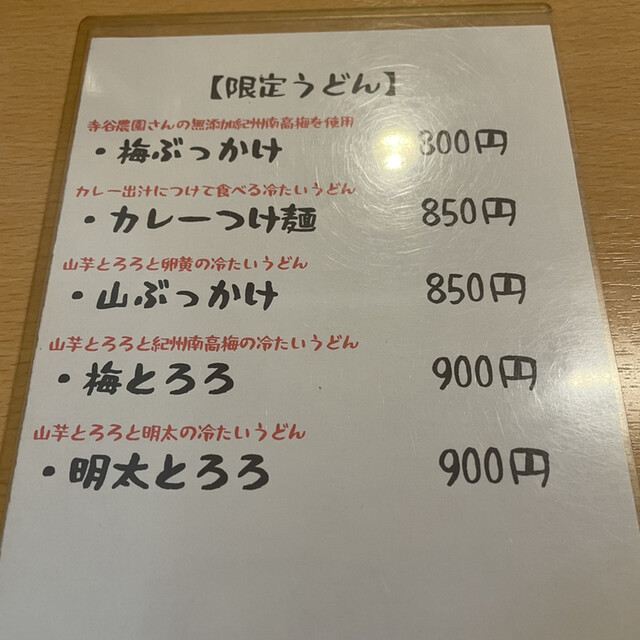 【限定うどん】
寺谷農園さんの無添加紀州南高梅を使用
・梅ぶっかけ 800円
カレー出汁につけて食べる冷たいうどん
・カレーつけ麺 850円
山芋とろろと卵黄の冷たいうどん
・山ぶっかけ 850円
山芋とろろと紀州南高梅の冷たいうどん
・梅とろろ 900円
山芋とろろと明太の冷たいうどん
・明太とろろ 900円